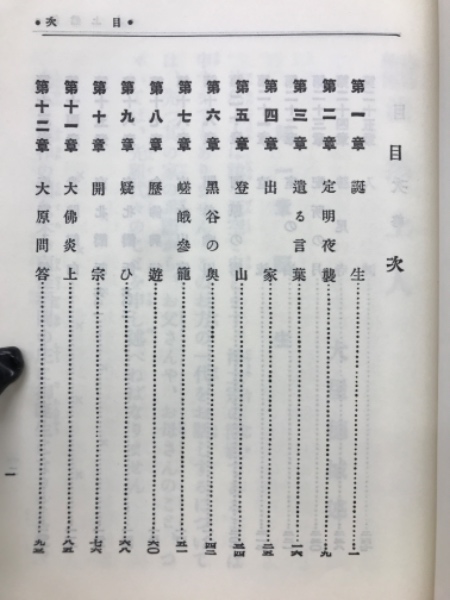 目次
目次
第一章 誕生 一
第二章 定明夜襲 九
第三章 遺る言葉 一六
第四章 出家 二五
第五章 登山 三四
第六章 黒谷の奥 四二
第七章 嵯峨參籠 五一
第八章 歷遊 六〇
第九章 疑ひ 六八
第十章 開宗 七六
第十一章 大佛炎上 八五
第十二章 大原問答 九五
一